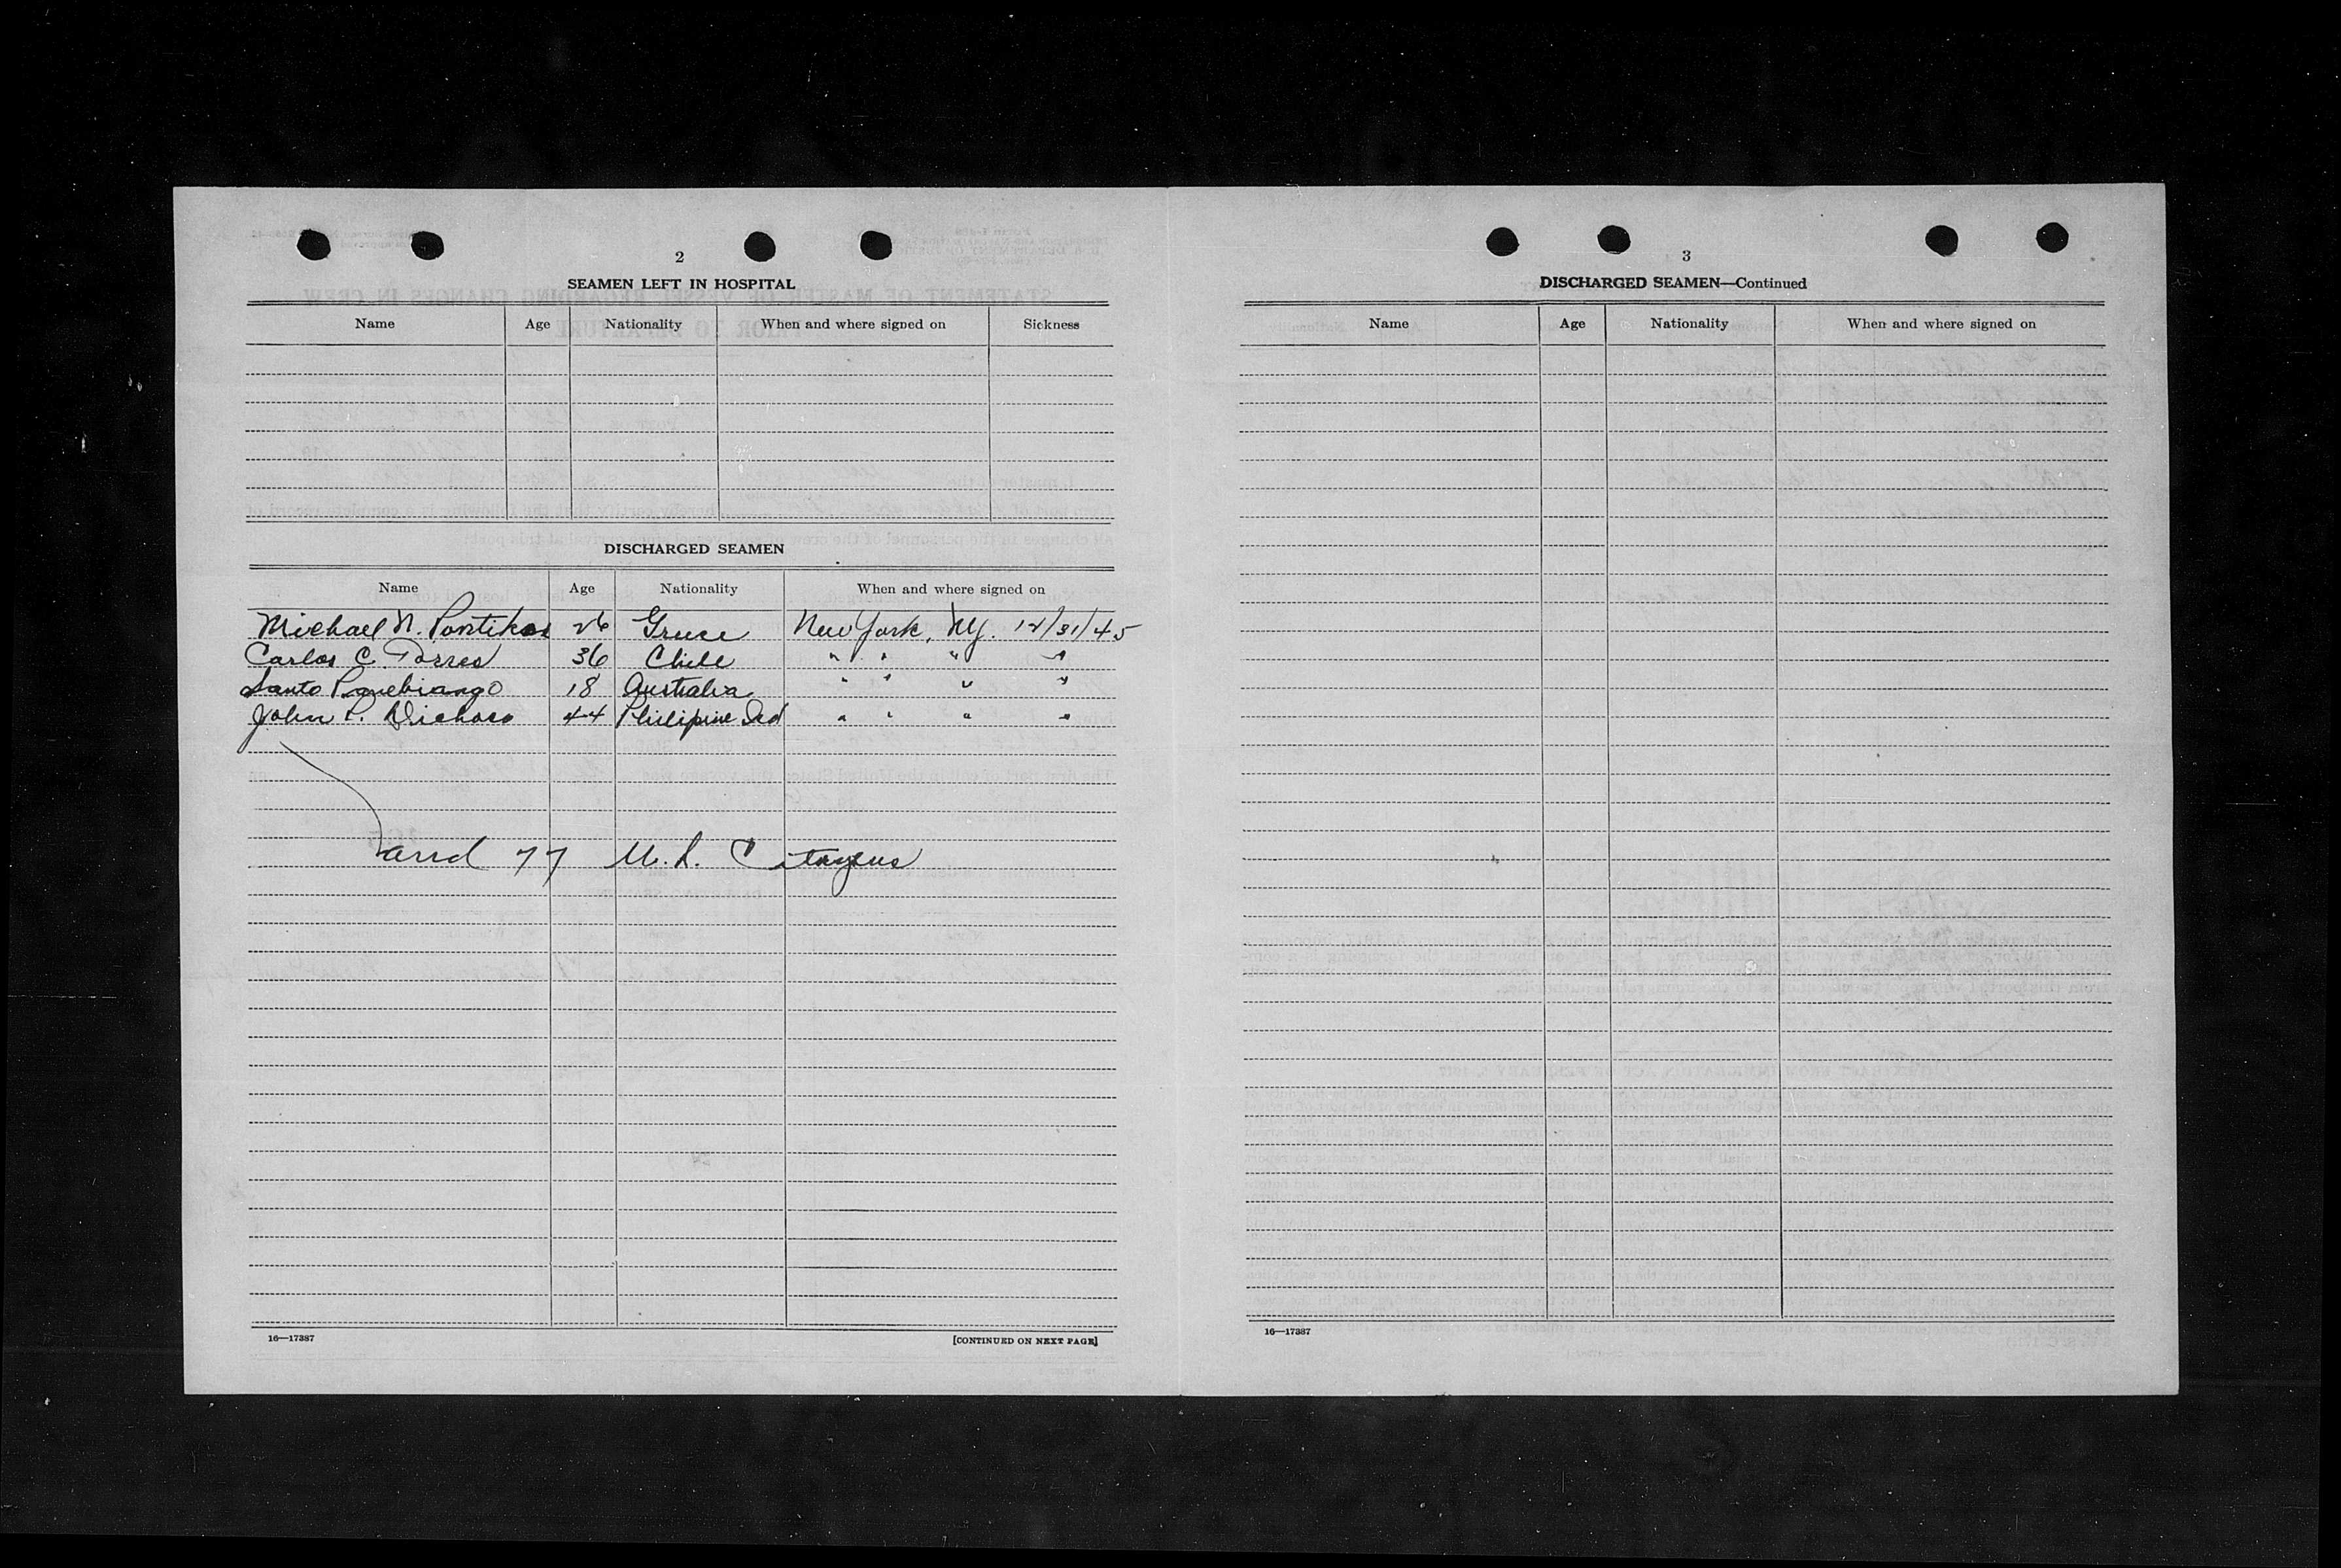 2
SEAMEN LEFT IN HOSPITAL
Name Age Nationality When and where signed on Sickness
DISCHARGED SEAMEN
Name Age Nationality When and where signed on
Michael N. Pontikos 26 Greece New York, N.Y. 12/31/45
Carlos C. Torres 36 Chile " " " "
Santo 18 Australia " " " "
John P. 44 Philipine Isd " " " "
and 77 U.S. Citizens
16—17387 [CONTINUED ON NEXT PAGE]
3
DISCHARGED SEAMEN—Continued
Name Age Nationality When and where signed on
16—17387